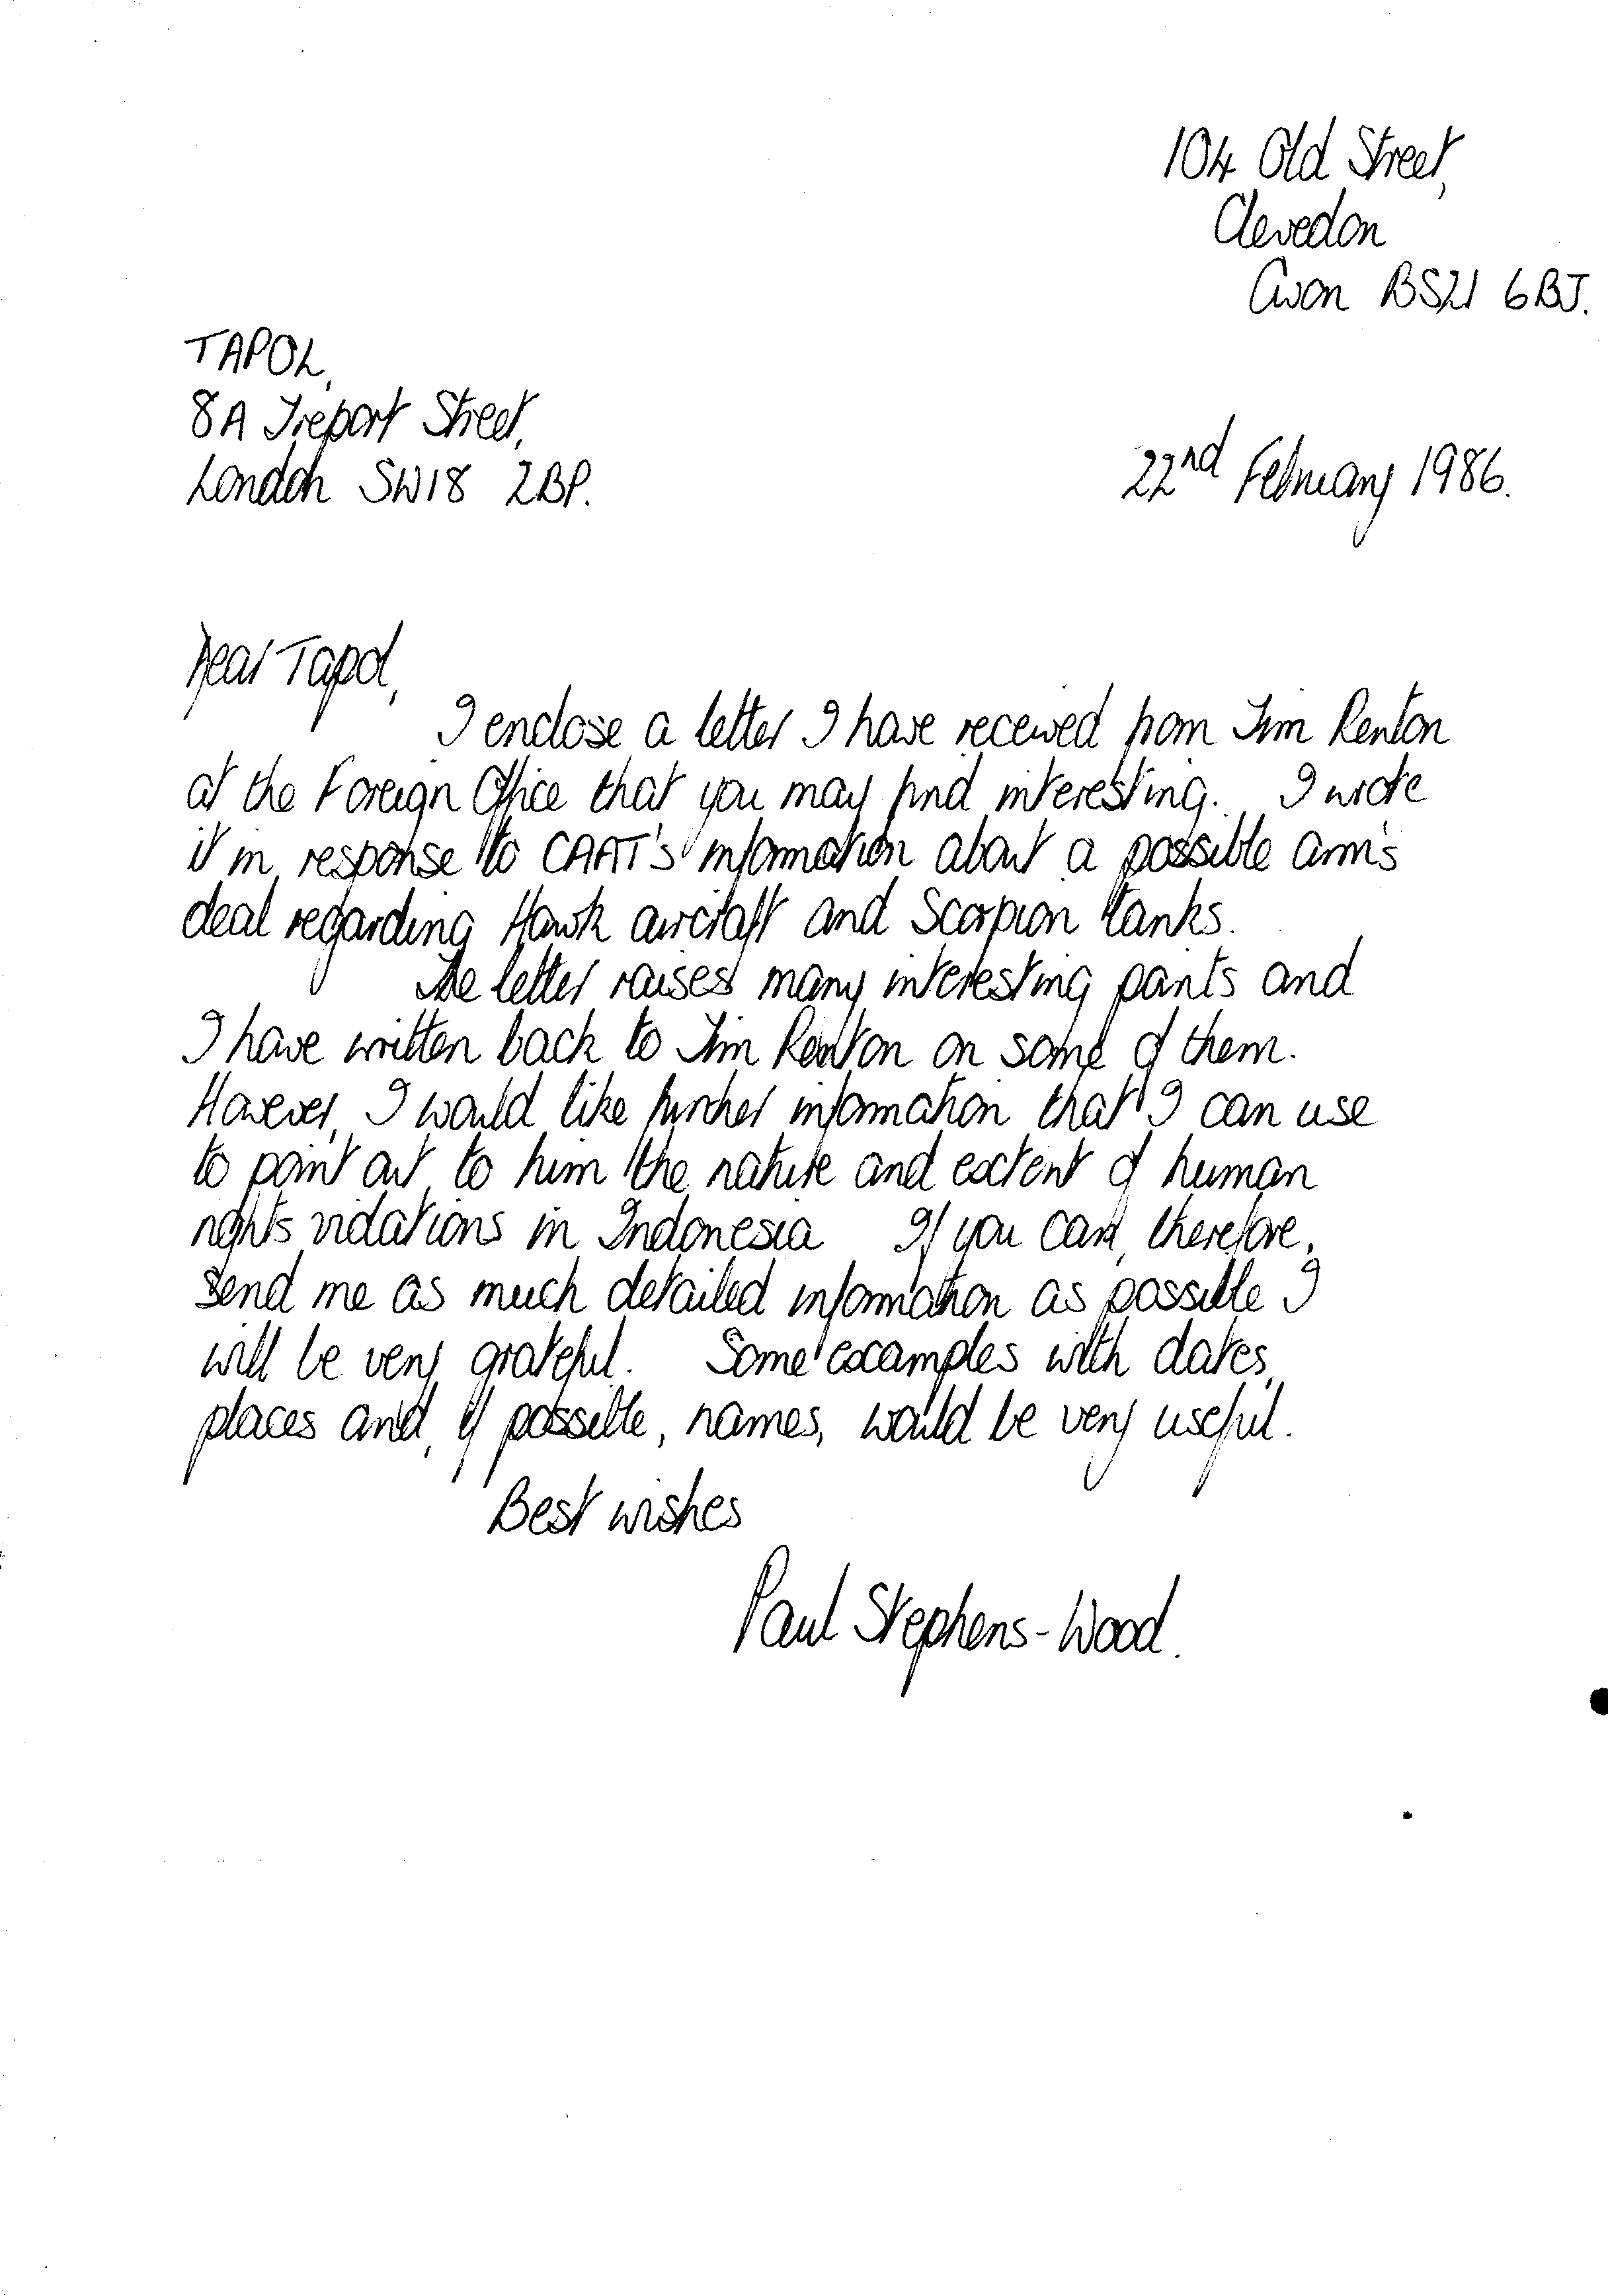 104 Old Street,
Clevedon
Avon BS21 6BJ.
TAPOL,
8A Treport Street,
London SW18 2BP.
22nd February 1986.
Dear Tapol,
I enclose a letter I have received from Tim Renton
at the Foreign Office that you may find interesting. I wrote
it in response to CAAT's information about a possible arms
deal regarding Hawk aircraft and Scorpion tanks.
The letter raises many interesting points and
I have written back to Tim Renton on some of them.
However, I would like further information that I can use
to point out to him the nature and extent of human
rights violations in Indonesia If you can, therefore,
send me as much detailed information as possible I
will be very grateful. Some examples with dates,
places and, if possible, names, would be very useful.
Best wishes
Paul Stephens-Wood.